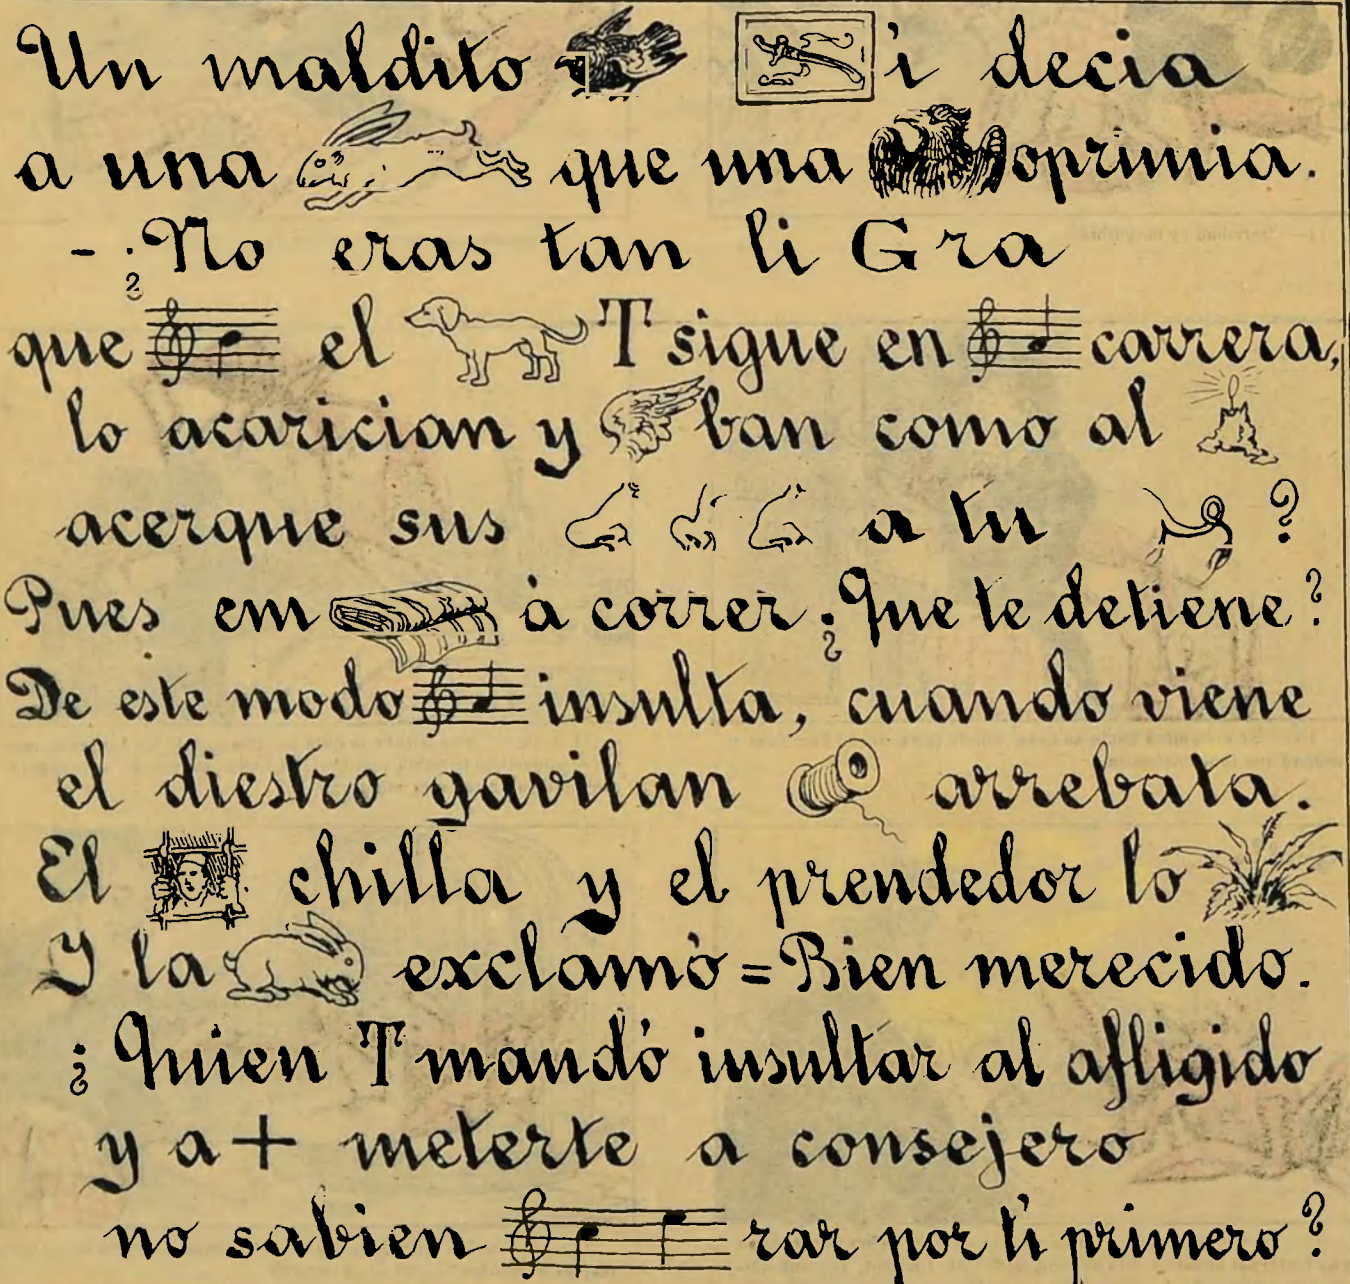 Un maldito i decia
a una que una oprimia.
- ¿No eras tan li G ra
que el T sigue en carrera,
lo acarician y ban como al
acerque sus a tu ?
Pues em à correr ¿Que te detiene?
De este modo insulta, cuando viene
el diestro gavilan arrebata.
El chilla y el prendedor lo
Y la exclamó = Bien merecido.
¿Quien T mandó insultar al afligido
y a + meterte a consejero
no sabien rar por ti primero?